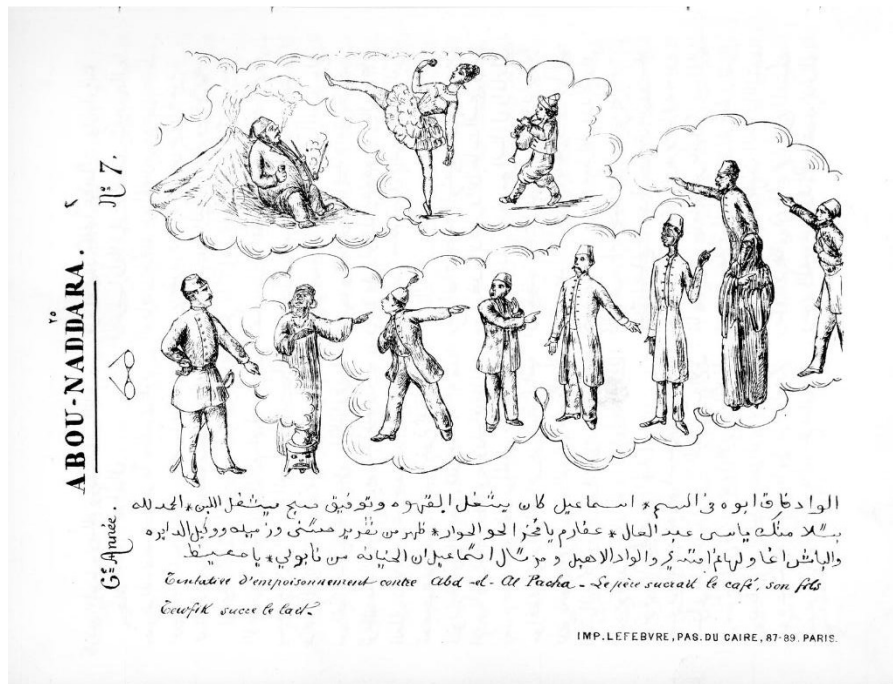 ABOU-NADDARA.
٢٥
6e Année.
No 7.
الواد فاق ابوه فى السم * اسماعيل كان يشغل القهوه وتوفيق صبح ميشغل اللبن * الحمد لله
مثلك ياسى عبد العال * عفارم يا فخر الحوار * ظهر من تقرير ووكيل الدايره
والباش اغا والواد الاهبل و اسماعيل ان الخيانه من نابولى *
Tentative d'empoisonnement contre Abd-el-Al Pacha - Le père sucrait le café, son fils
Tewfik sucre le lait.
IMP. LEFEBVRE, PAS. DU CAIRE, 87-89. PARIS.